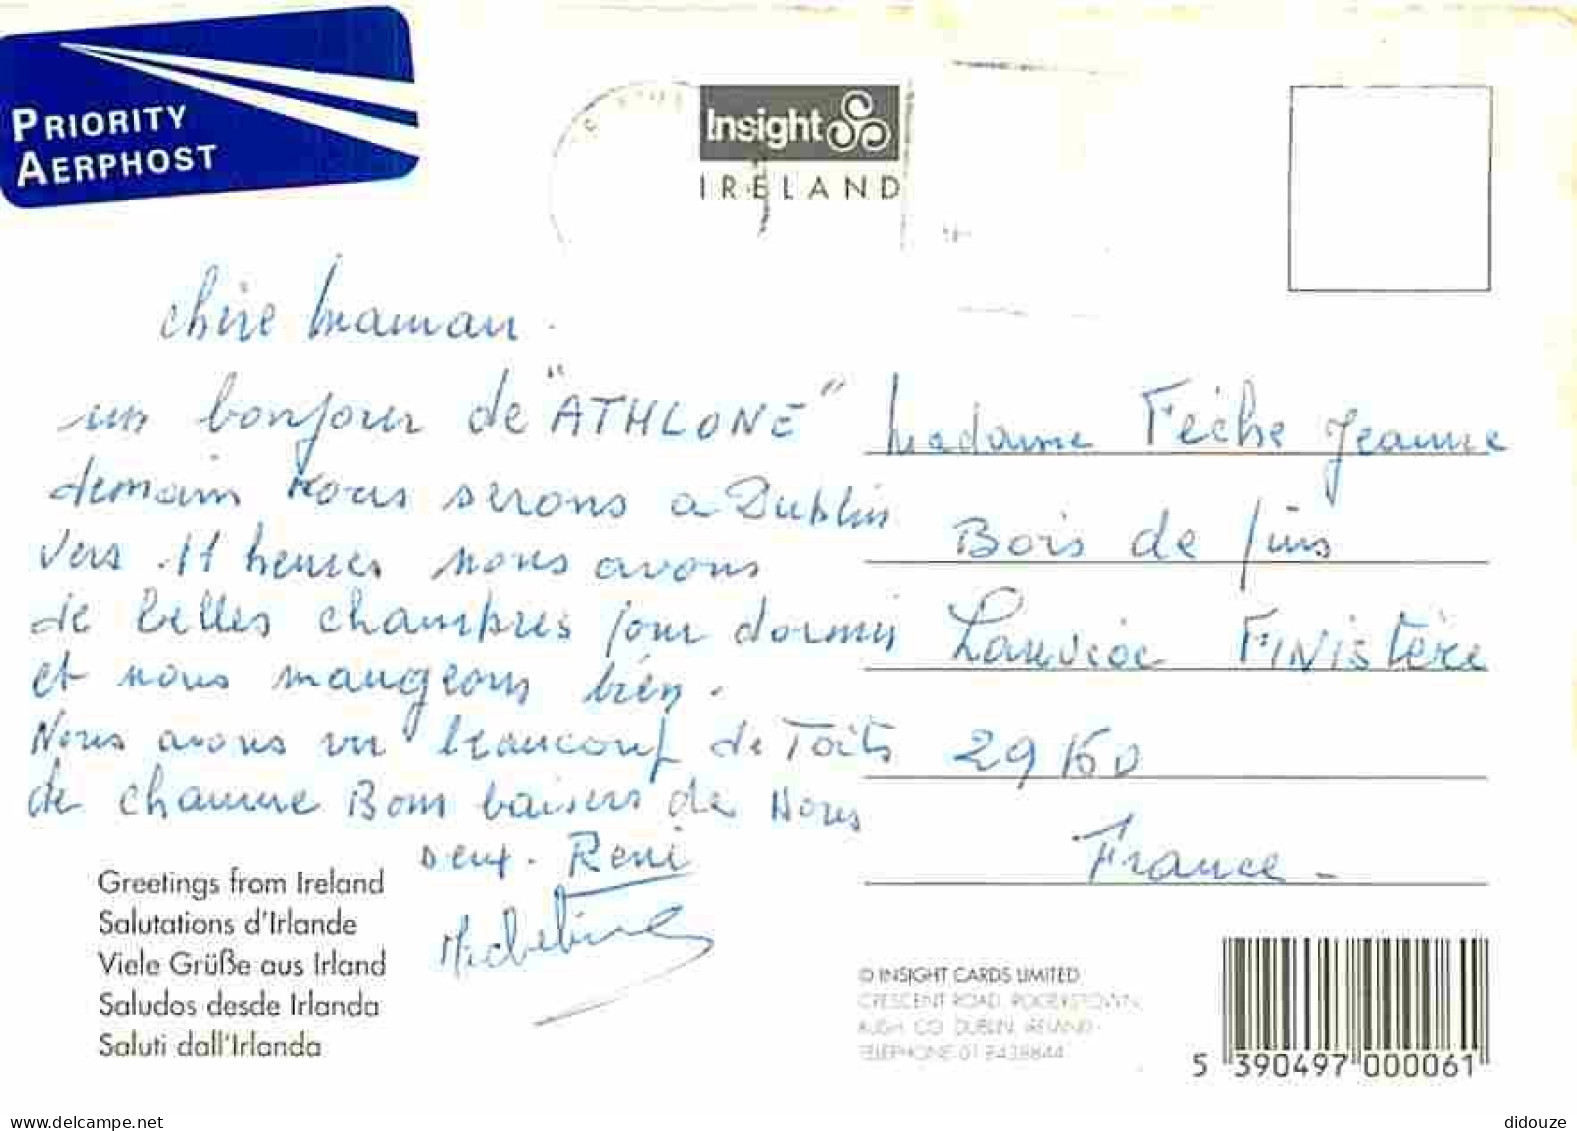 PRIORITY
AERPHOST
Insight
IRELAND
chère Maman.
un bonjour de "ATHLONE"
demain nous serons a Dublin
vers 11 heures nous avons
de belles chambres pour dormir
et nous mangeons bien.
Nous avons vu beaucoup de Toits
de chaume Bons baisers de Nous
deux. René
Micheline
Madame Féche Jeanne
Bois de pins
Lanvéoc FINISTère
29160
France -
Greetings from Ireland
Salutations d'Irlande
Viele Grüße aus Irland
Saludos desde Irlanda
Saluti dall'Irlanda
© INSIGHT CARDS LIMITED
CRESCENT ROAD, ROGERSTOWN,
RUSH, CO. DUBLIN, IRELAND
TELEPHONE 01 8438844
5 390497 000061
www.delcampe.net
didouze